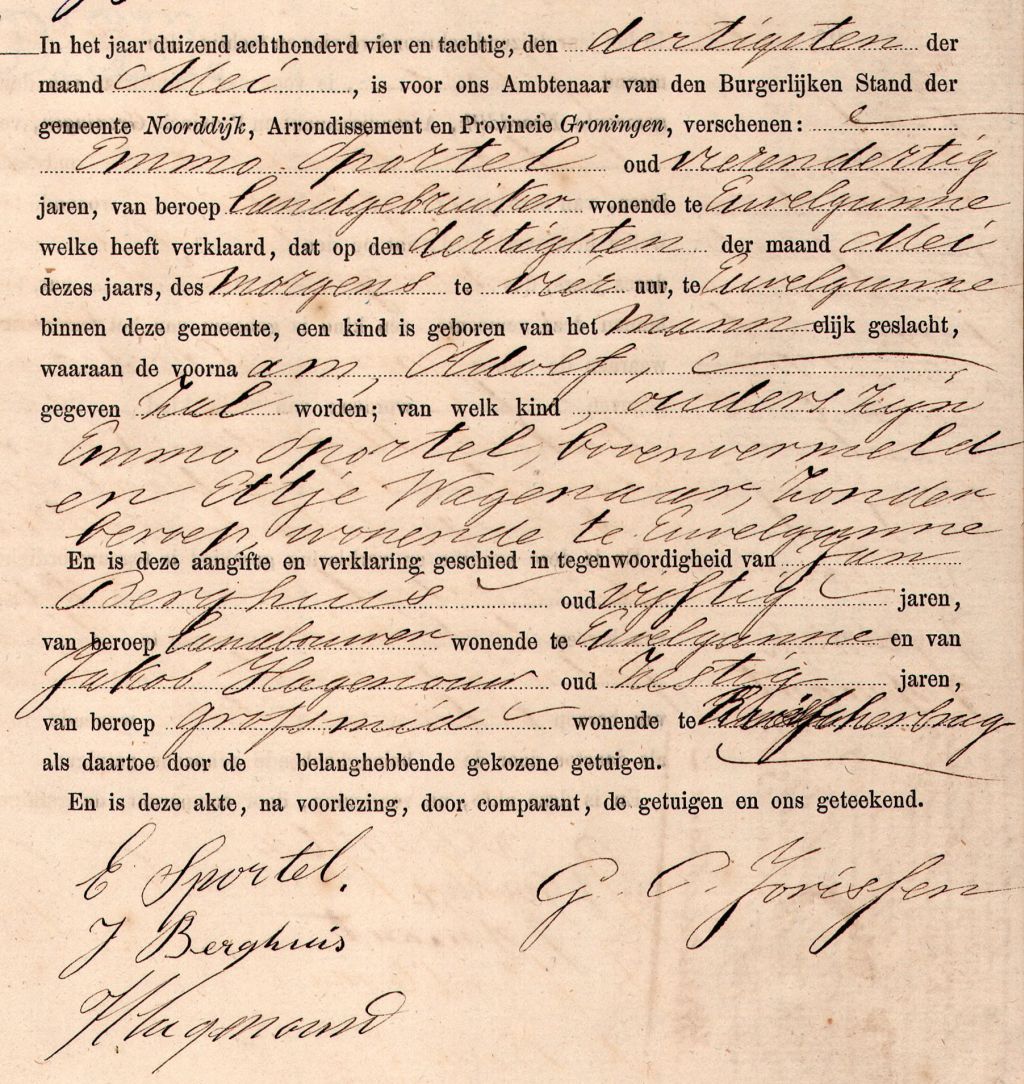 In het jaar duizend achthonderd vier en tachtig, den dertigsten der
maand Mei, is voor ons Ambtenaar van den Burgerlijken Stand der
gemeente Noorddijk, Arrondissement en Provincie Groningen, verschenen:
Emmo Sportel oud vierendertig
jaren, van beroep landgebruiker wonende te Euvelgunne
welke heeft verklaard, dat op den dertigsten der maand Mei
dezes jaars, des morgens te vier uur, te Euvelgunne
binnen deze gemeente, een kind is geboren van het mannelijk geslacht,
waaraan de voornaam, Adolf,
gegeven zal worden; van welk kind, ouders zijn
Emmo Sportel, bovenvermeld
en Eltje Wagenaar, zonder
beroep, wonende te Euvelgunne
En is deze aangifte en verklaring geschied in tegenwoordigheid van Jan
Berghuis oud vijftig jaren,
van beroep landbouwer wonende te Euvelgunne en van
Jakob Hagenouw oud zestig jaren,
van beroep grofsmid wonende te
als daartoe door de belanghebbende gekozene getuigen.
En is deze akte, na voorlezing, door comparant, de getuigen en ons geteekend.
E Sportel.
G. C. Jorissen
J Berghuis